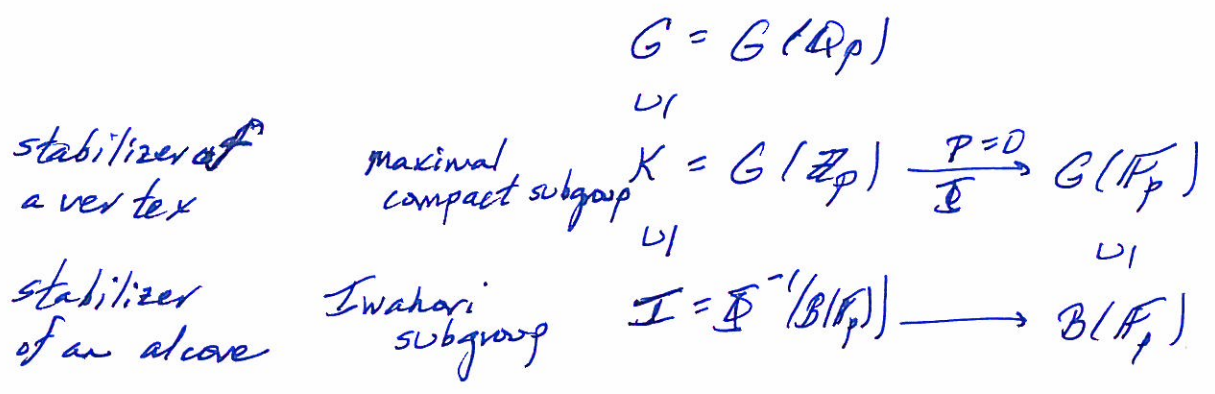 G = G(ℚp)
∪|
stabilizer of a vertex maximal compact subgroup K = G(ℤp) —p=0/Φ→ G(𝔽p)
∪| ∪|
stabilizer of an alcove Iwahori subgroup I = Φ⁻¹(B(𝔽p)) ⟶ B(𝔽p)